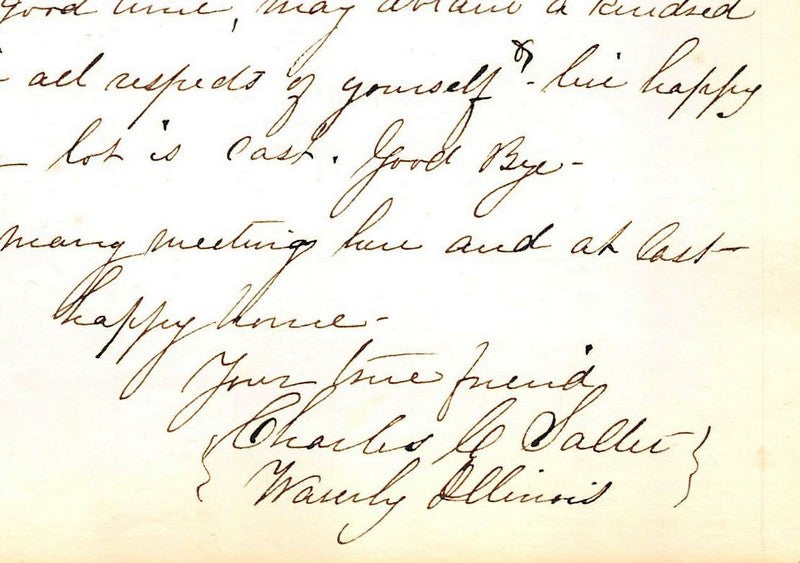 good time, may obtain a kindred
all respects of yourself & live happy
lot is cast. Good Bye -
many meeting here and at last
happy home -
Your true friend
Charles C Salter
Waverly Illinois